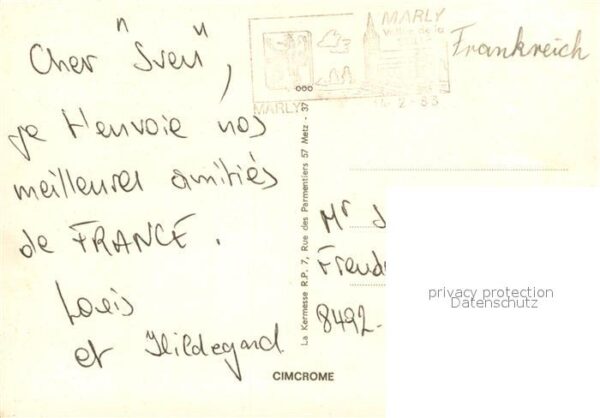 Cher "Sven",
je t'envoie nos
meilleures amitiés
de FRANCE.
Louis
et Hildegard
MARLY
MARLY
14-2-83
Frankreich
La Kermesse R.P. 7, Rue des Parmentiers 57 Metz - 37
Mr
8492-
privacy protection
Datenschutz
CIMCROME